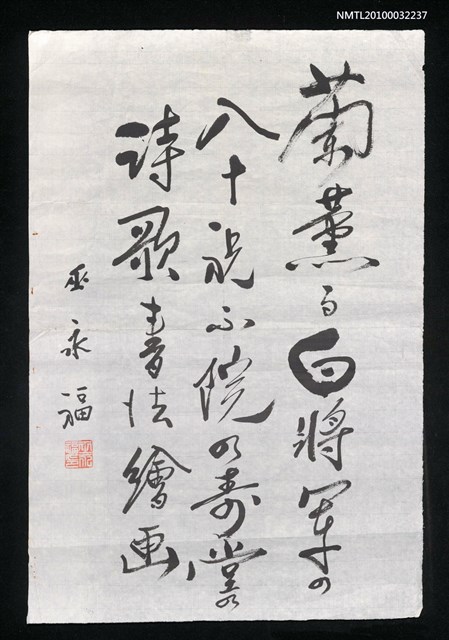 NMTL20100032237
蘭薫る白將軍の
八十祝ふ院の壽
詩歌書法繪画
巫永福